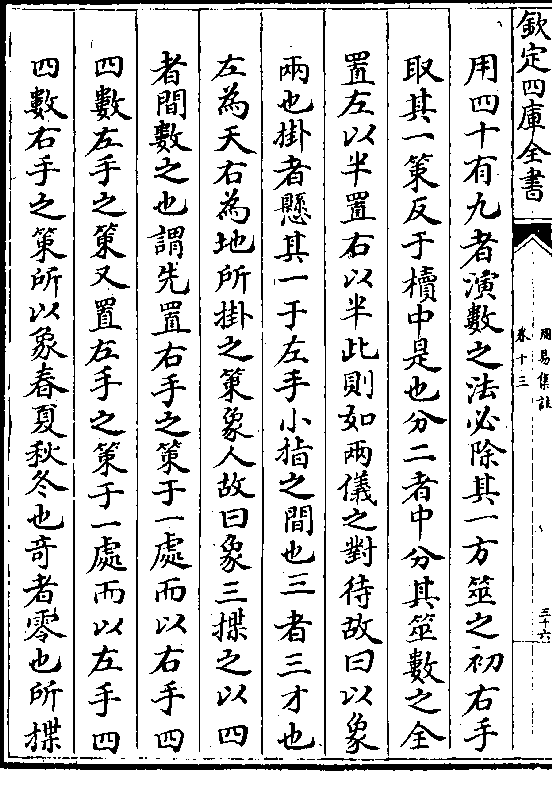 欽定四庫全書
周易集註
卷十三
三十六
用四十有九者演數之法必除其一方筮之初右手
取其一策反于櫝中是也分二者中分其筮數之全
置左以半置右以半此則如兩儀之對待故曰以象
兩也掛者懸其一于左手小指之間也三者三才也
左為天右為地所掛之策象人故曰象三揲之以四
者間數之也謂先置右手之策于一處而以右手四
四數左手之策又置左手之策于一處而以左手四
四數右手之策所以象春夏秋冬也奇者零也所揲